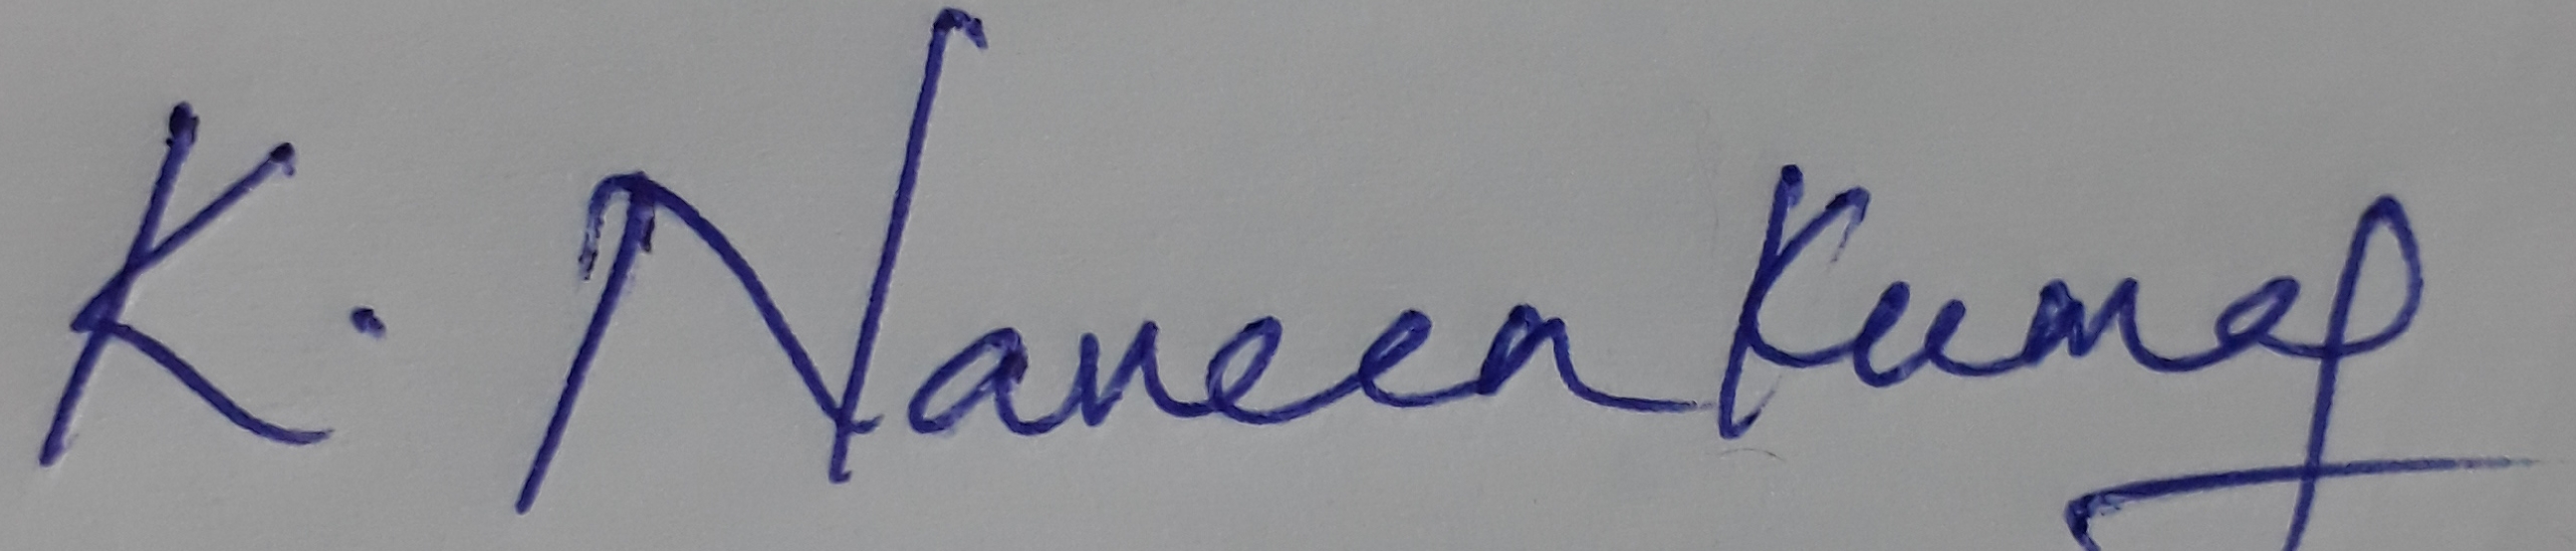 K. Naveen Kumar